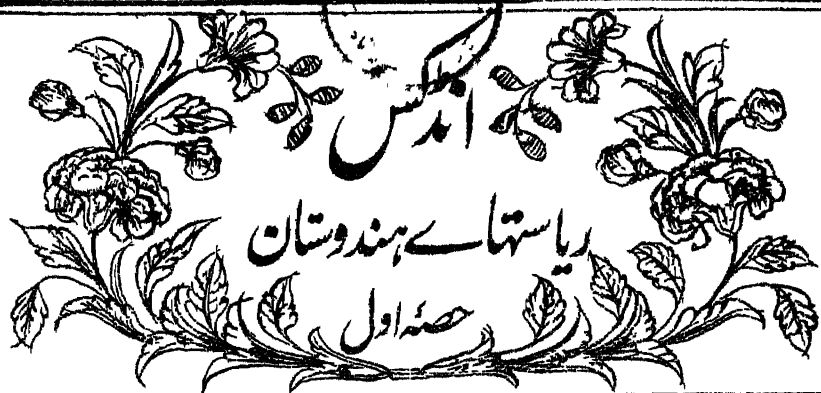 انڈکس
ریاستہاے ہندوستان
حصۂ اول